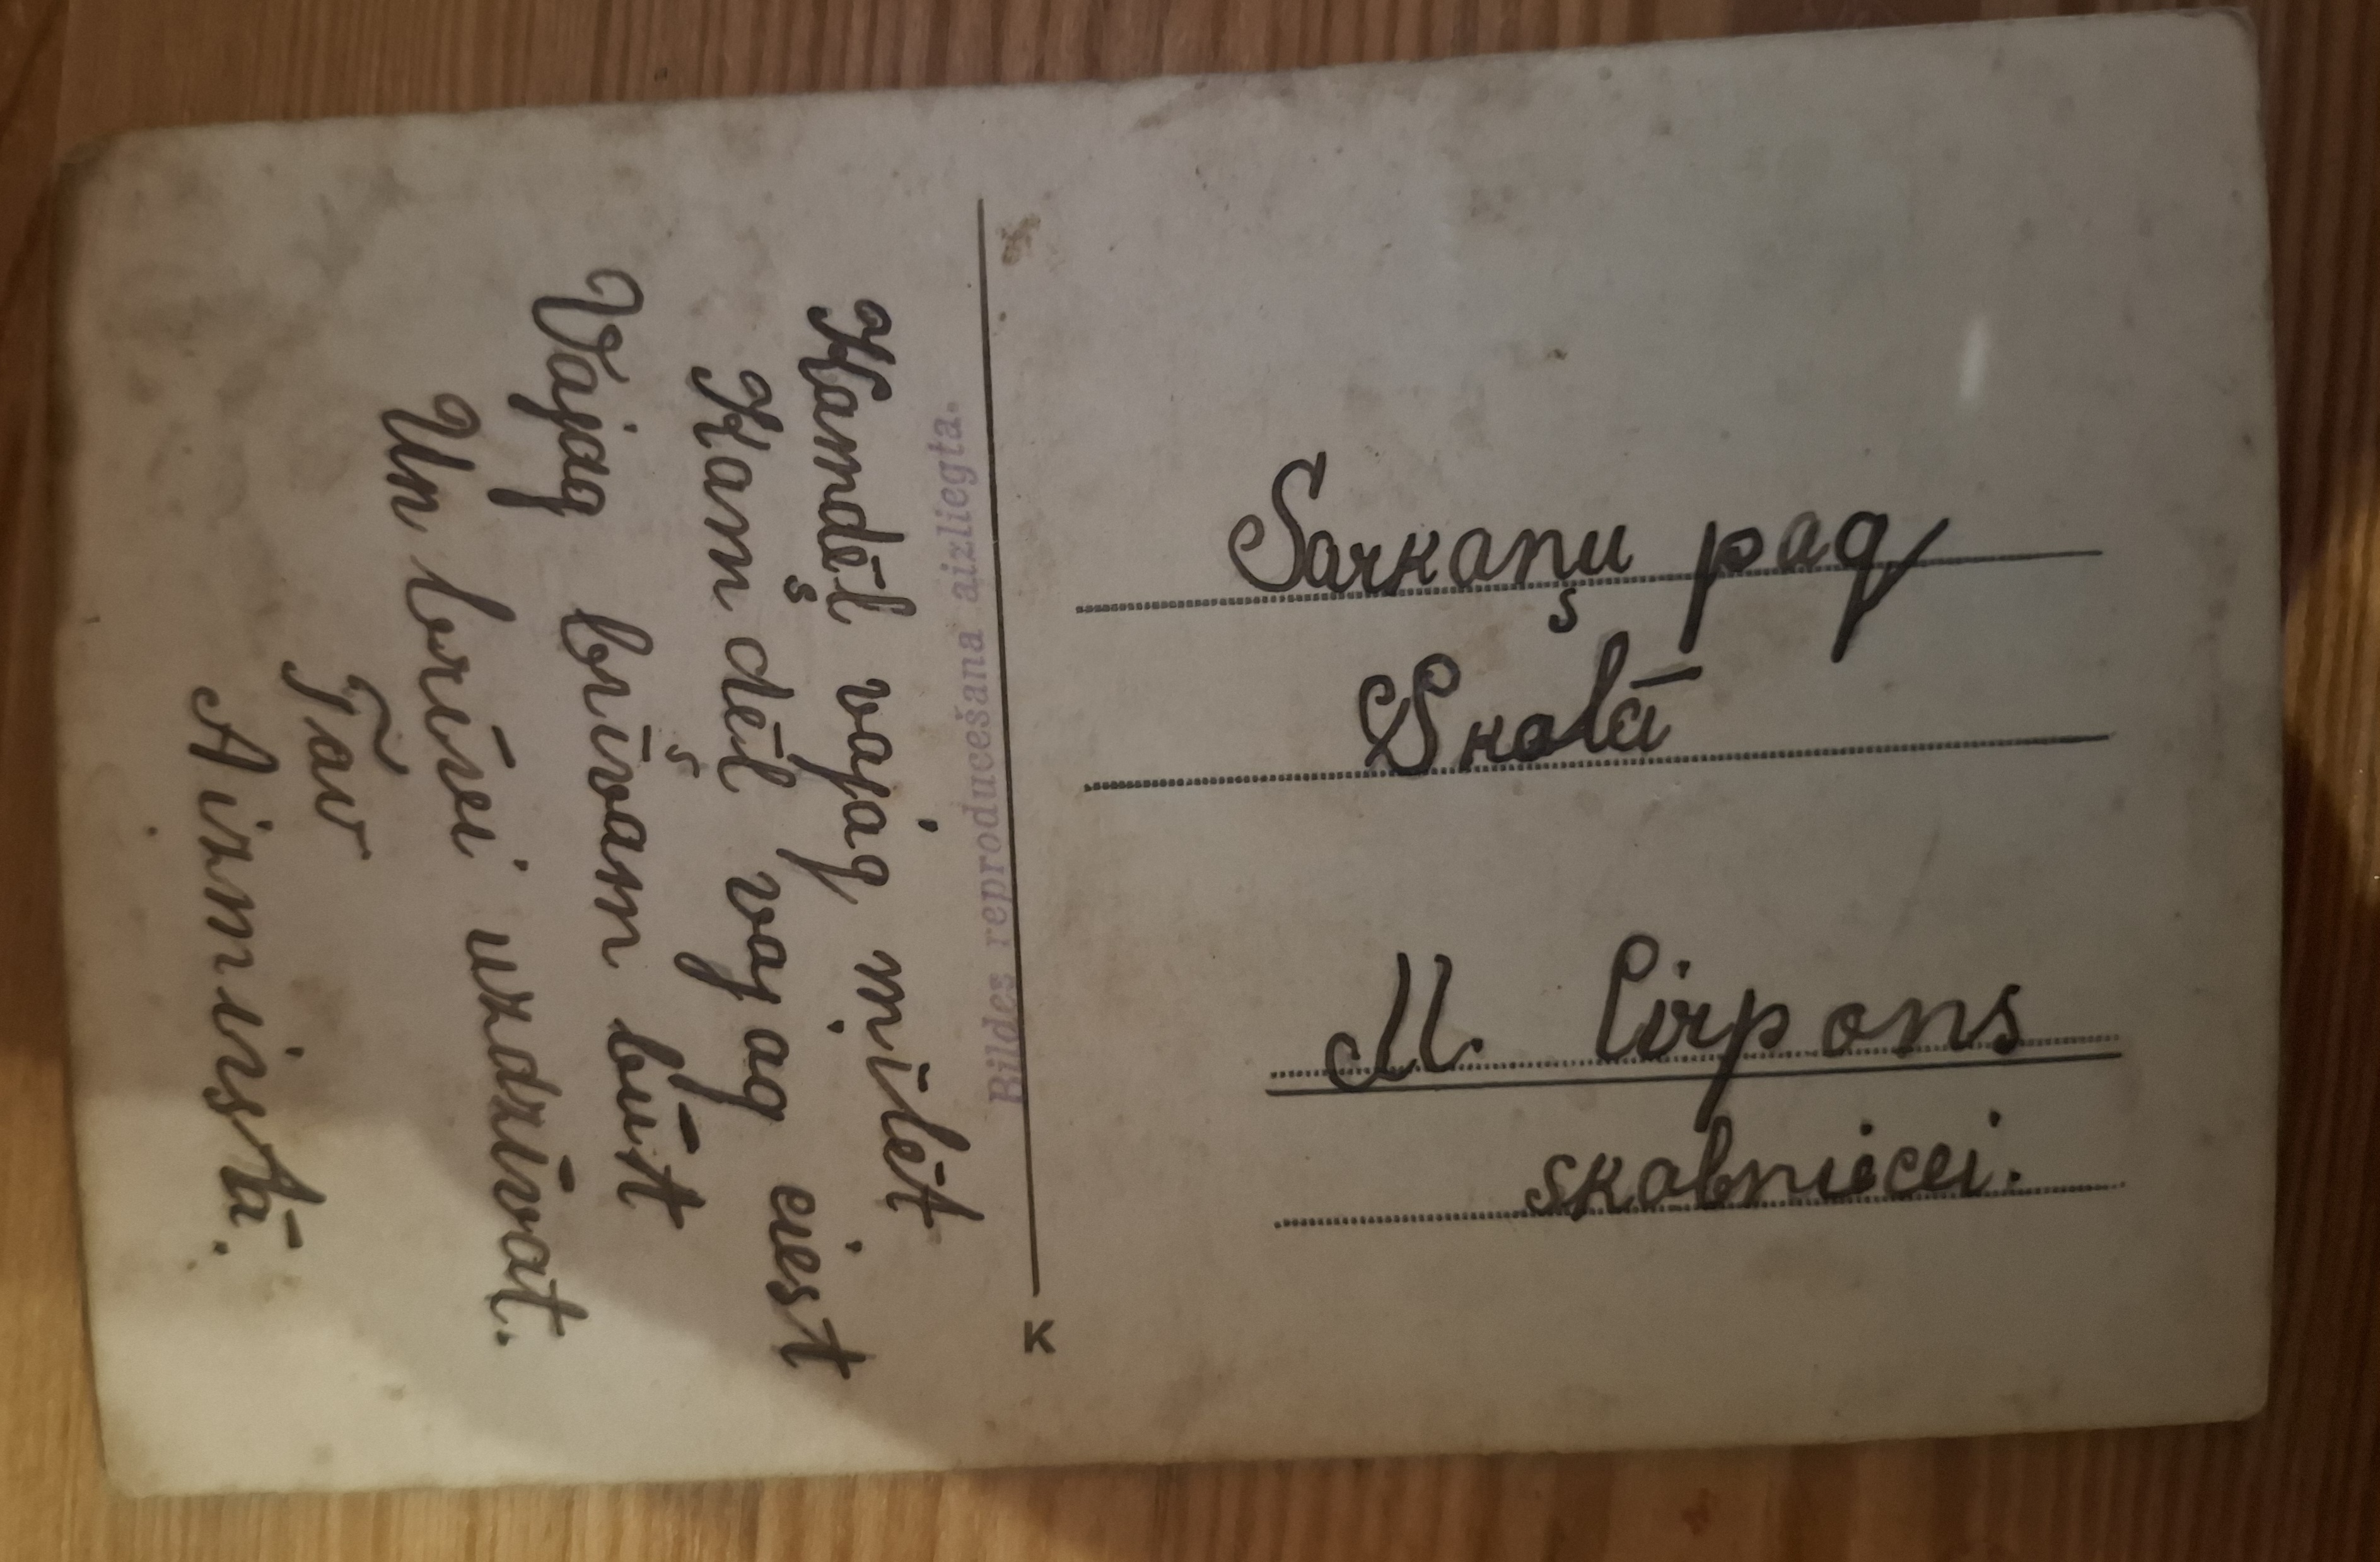 Kamdēļ vajag mīlēt
Kam dēļ vajag ciest
Vajag brīvam būt
Un brīvi uzdzīvot.
Tav
Aizmirstā.
Bildes reproducešana aizliegta.
K
Sarkaņu pag
Skolā
M. Cirpons
skolnicei.